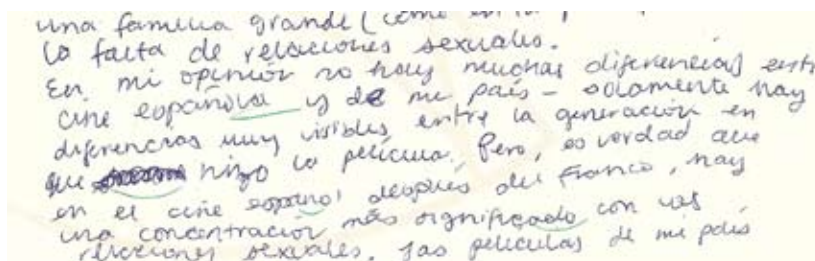 una familia grande (como en la
la falta de relaciones sexuales.
En mi opinión no hay muchas diferencias entr
cine española y de mi país - solamente hay
diferencias muy visibles entre la generación en
que hizo la película. Pero, es verdad que
en el cine español después del Franco, hay
una concentración más significado con las
relaciones sexuales. Las películas de mi país